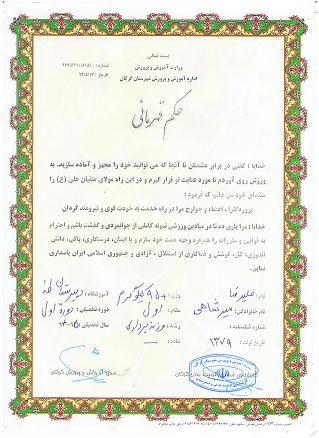 بسمه تعالی
وزارت آموزش و پرورش
اداره آموزش و پرورش شهرستان گرگان
حکم قهرمانی
خدایا : گفتی در برابر دشمنان تا آنجا که می توانید خود را مجهز و آماده سازید. به
ورزش روی آوردم تا مورد عنایت تو قرار گیرم و در این راه مولای متقیان علی (ع) را
مقتدای خود می دانم که فرمود :
پروردگارا ، اعضاء و جوارح مرا در راه خدمت به خودت قوی و نیرومند گردان.
خدایا : مرا یاری ده تا در میادین ورزشی نمونه کاملی از جوانمردی و گذشت باشم و احترام
به قوانین و مقررات را همواره وجهه همت خود سازم و با ایمان، درستکاری، پاکی، دانش
اندوزی، کار، کوشش و فداکاری از استقلال ، آزادی و جمهوری اسلامی ایران پاسداری
نمایم.
نام : علیرضا وزن : +۹۵ کیلوگرم آموزشگاه : دبیرستان طه
نام خانوادگی : میرشاهی مقام : اول دوره تحصیلی : دوره اول
شماره شناسنامه : رشته : وزنه برداری سال تحصیلی :
تاریخ تولد : ۱۳۷۹ ماده :